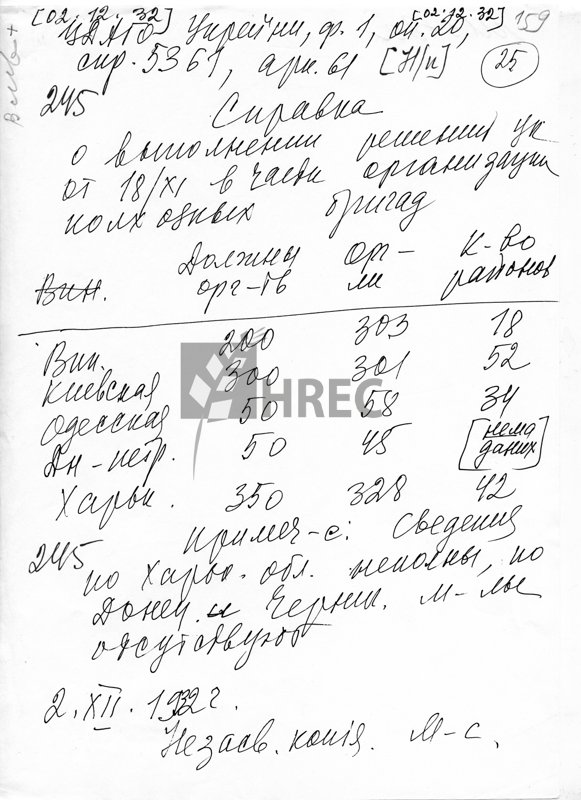 [02.12.32] [02.12.32] 159
ЦДАГО України, ф. 1, оп. 20,
спр. 5361, арк. 61 [Н/п] 25
245 Справка
о выполнении решения ЦК
от 18/XI в части организации
колхозных бригад
Вин. Должны орг-ть орг-ли К-во районов
Вин. 200 303 18
Киевская 300 301 52
Одесская 50 58 34
Дн-петр. 50 45 [нема даних]
Харьк. 350 328 42
Примеч-е: Сведения
245 по Харьк. обл. неполны, по
Донец. и Черниг. м-лы
отсутствуют
2.XII.1932 г.
Незасв. копія. М-с.
HREC